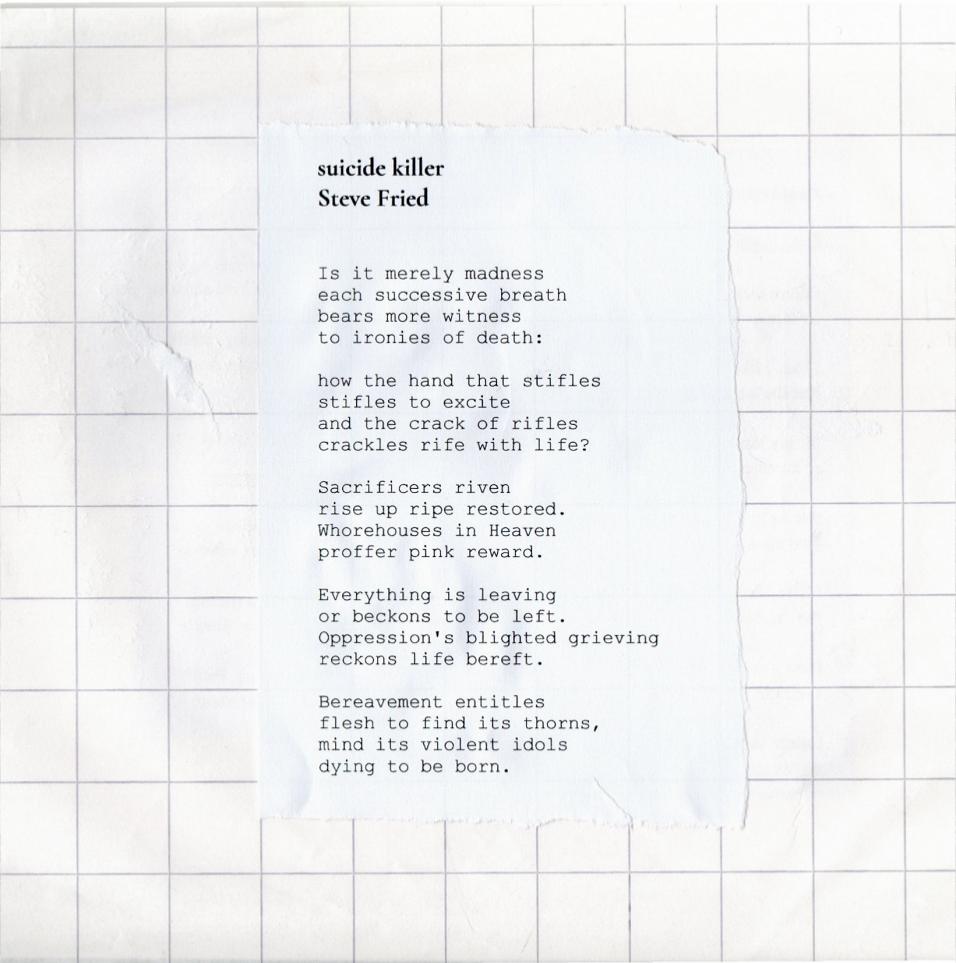 suicide killer
Steve Fried
Is it merely madness
each successive breath
bears more witness
to ironies of death:
how the hand that stifles
stifles to excite
and the crack of rifles
crackles rife with life?
Sacrificers riven
rise up ripe restored.
Whorehouses in Heaven
proffer pink reward.
Everything is leaving
or beckons to be left.
Oppression's blighted grieving
reckons life bereft.
Bereavement entitles
flesh to find its thorns,
mind its violent idols
dying to be born.